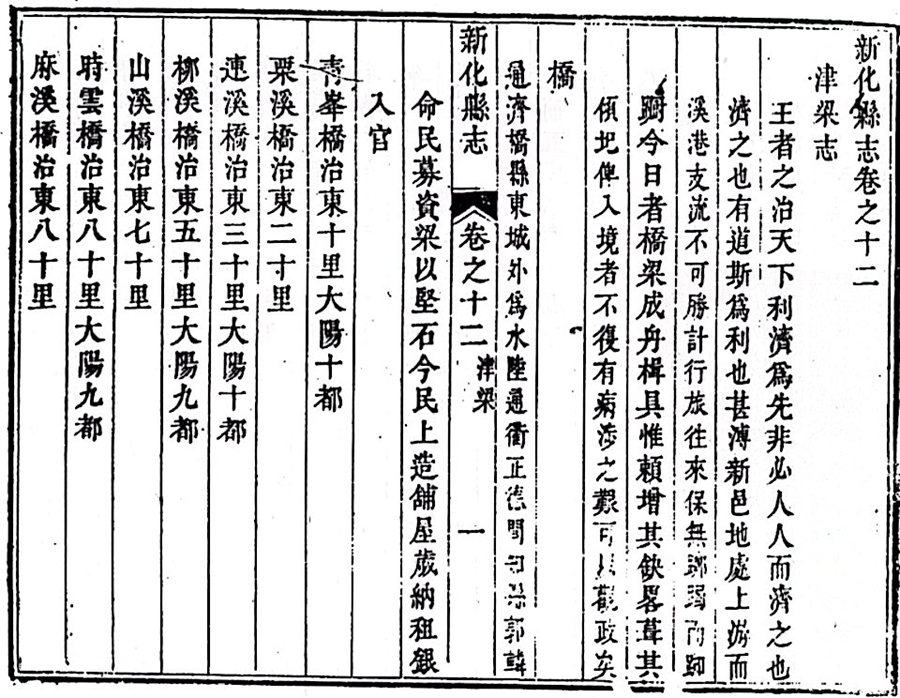 新化縣志卷之十二
津梁志
王者之治天下利濟爲先非必人人而濟之也
濟之也有道斯爲利也甚溥新邑地處上游而
溪港支流不可勝計行旅往來保無踯躅而
今日者橋梁成舟楫具惟賴增其缺畧葺其
傾圯俾入境者不復有病涉之艱可以觀政矣
橋
通濟橋縣東城外爲水陸通衢正德間知縣郭
新化縣志 卷之十二 津梁 一
命民募資梁以堅石今民上造舖屋歲納租銀
入官
青峯橋治東十里大陽十都
粟溪橋治東二十里
連溪橋治東三十里大陽十都
柳溪橋治東五十里大陽九都
山溪橋治東七十里
時雲橋治東八十里大陽九都
麻溪橋治東八十里